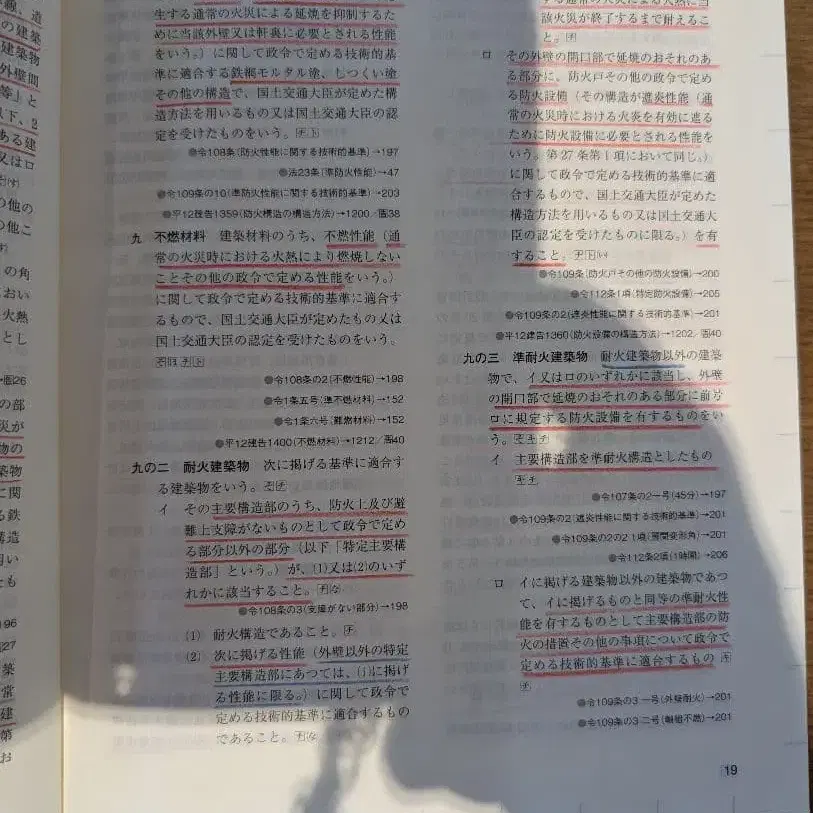 生する通常の火災による延焼を抑制するた
めに当該外壁又は軒裏に必要とされる性能
をいう。)に関して政令で定める技術的基
準に適合する鉄網モルタル塗、しつくい塗
その他の構造で、国土交通大臣が定めた構
造方法を用いるもの又は国土交通大臣の認
定を受けたものをいう。
●令108条(防火性能に関する技術的基準)→197
●法23条(準防火性能)→47
●令109条の10(準防火性能に関する技術的基準)→203
●平12建告1359(防火構造の構造方法)→1200/圕38
九 不燃材料 建築材料のうち、不燃性能(通
常の火災時における火熱により燃焼しない
ことその他の政令で定める性能をいう。)
に関して政令で定める技術的基準に適合す
るもので、国土交通大臣が定めたもの又は
国土交通大臣の認定を受けたものをいう。
●令108条の2(不燃性能)→198
●令1条五号(準不燃材料)→152
●令1条六号(難燃材料)→152
●平12建告1400(不燃材料)→1212/圕40
九の二 耐火建築物 次に掲げる基準に適合す
る建築物をいう。
イ その主要構造部のうち、防火上及び避
難上支障がないものとして政令で定め
る部分以外の部分(以下「特定主要構
造部」という。)が、(1)又は(2)のいず
れかに該当すること。
●令108条の3(支障がない部分)→198
(1) 耐火構造であること。
(2) 次に掲げる性能(外壁以外の特定
主要構造部にあつては、(i)に掲げ
る性能に限る。)に関して政令で
定める技術的基準に適合するもの
であること。
該火災が終了するまで耐えるこ
と。
ロ その外壁の開口部で延焼のおそれのあ
る部分に、防火戸その他の政令で定め
る防火設備(その構造が遮炎性能(通
常の火災時における火炎を有効に遮る
ために防火設備に必要とされる性能を
いう。第27条第1項において同じ。)
に関して政令で定める技術的基準に適
合するもので、国土交通大臣が定めた
構造方法を用いるもの又は国土交通大
臣の認定を受けたものに限る。)を有
すること。
●令109条(防火戸その他の防火設備)→200
●令112条1項(特定防火設備)→205
●令109条の2(遮炎性能に関する技術的基準)→201
●平12建告1360(防火設備の構造方法)→1202/圕40
九の三 準耐火建築物 耐火建築物以外の建築
物で、イ又はロのいずれかに該当し、外壁
の開口部で延焼のおそれのある部分に前号
ロに規定する防火設備を有するものをい
う。
イ 主要構造部を準耐火構造としたもの
●令107条の2一号(45分)→197
●令109条の2(遮炎性能に関する技術的基準)→201
●令109条の2の2 1項(層間変形角)→201
●令112条2項(1時間)→206
ロ イに掲げる建築物以外の建築物であつ
て、イに掲げるものと同等の準耐火性
能を有するものとして主要構造部の防
火の措置その他の事項について政令で
定める技術的基準に適合するもの
●令109条の3 一号(外壁耐火)→201
●令109条の3 二号(軸組不燃)→201
19